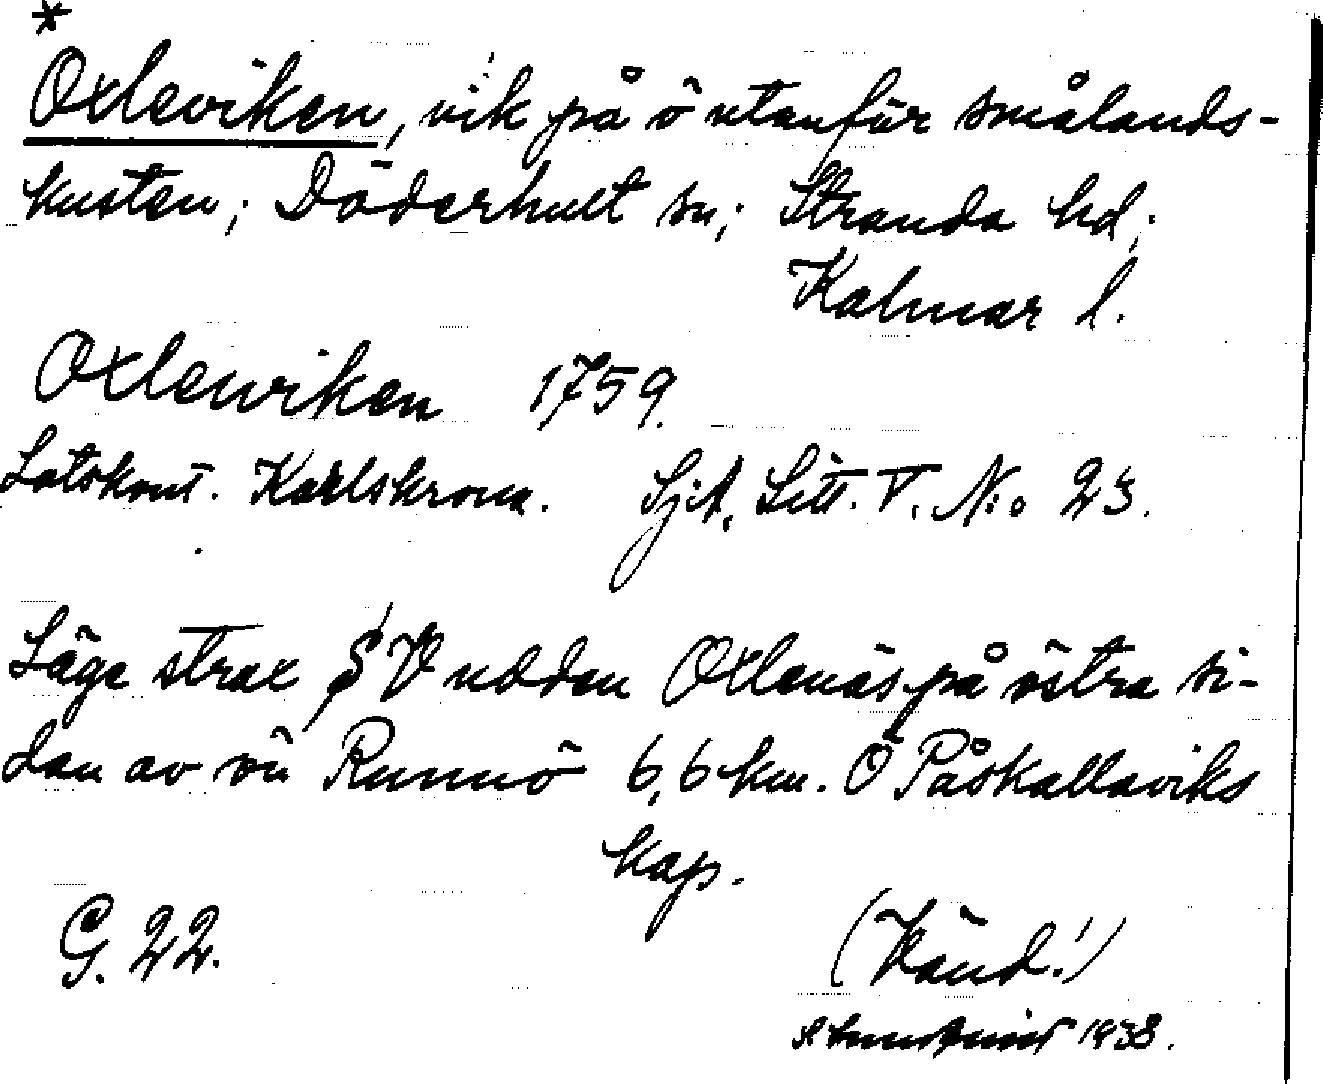 *
Oxleviken, vik på ö utanför smålands-
kusten; Döderhult sn; Stranda hd;
Kalmar l.
Oxlewiken 1759.
Lotskont. Karlskrona. Sjök. Litt. V. N:o 23.
Läge strax V udden Oxlenäs på östra si-
dan av ön Runnö 6,6 km. Ö Påskallaviks
kap.
G. 22.
(Vänd!)
1938.